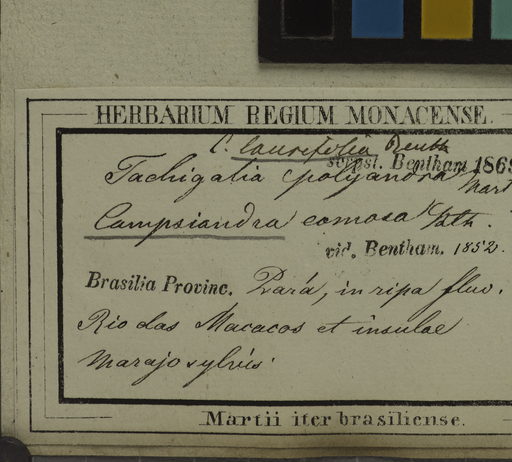 HERBARIUM REGIUM MONACENSE.
C. laurifolia Benth
scripst. Bentham 1869
Tachigalia polyandra Mart
Campsiandra comosa Bth.
vid. Bentham. 1852.
Brasilia Provinc. Pará, in ripa fluv.
Rio das Macacos et insulae
Marajo sylvis
Martii iter brasiliense.